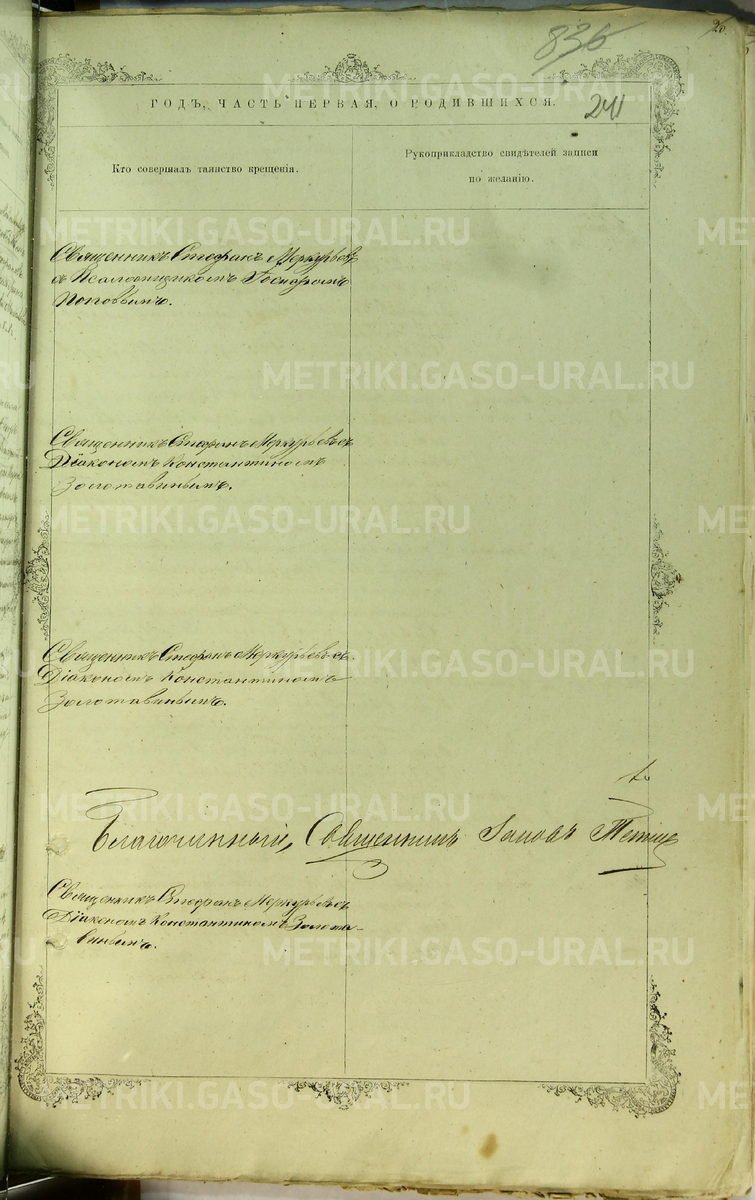 20
836
ГОДЪ, ЧАСТЬ ПЕРВАЯ, О РОДИВШИХСЯ.
241
Кто совершалъ таинство крещенія.
Рукоприкладство свидѣтелей записи
по желанію.
Священникъ Стефанъ Меркурьевъ
съ Псаломщикомъ
Поповымъ.
Священникъ Стефанъ Меркурьевъ съ
Діакономъ Константиномъ
Золотавинымъ.
Священникъ Стефанъ Меркурьевъ съ
Діакономъ Константиномъ
Золотавинымъ.
Благочинный, Священникъ Іаковъ
Священникъ Стефанъ Меркурьевъ съ
Діакономъ Константиномъ Золота-
винымъ.
METRIKI.GASO-URAL.RU